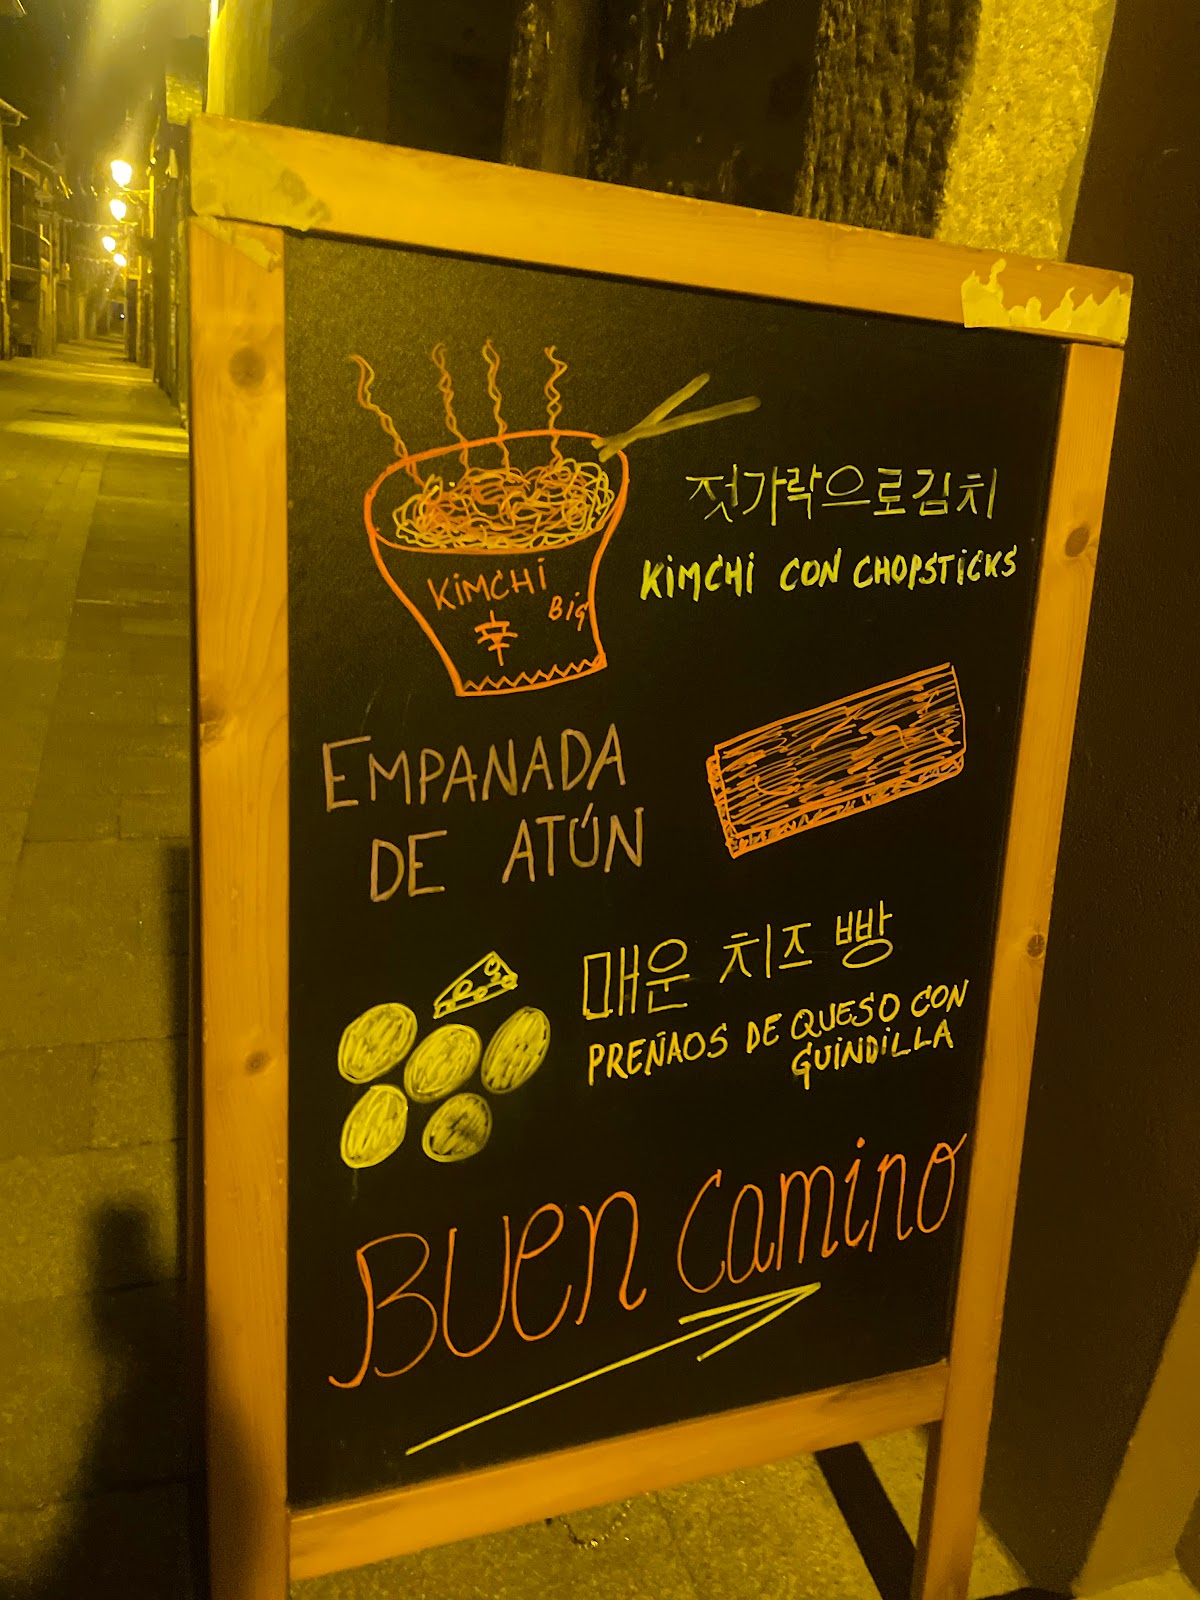 KIMCHI
Big
辛
젓가락으로김치
KIMCHI CON CHOPSTICKS
EMPANADA
DE ATÚN
매운 치즈 빵
PREÑAOS DE QUESO CON
GUINDILLA
BUEN Camino